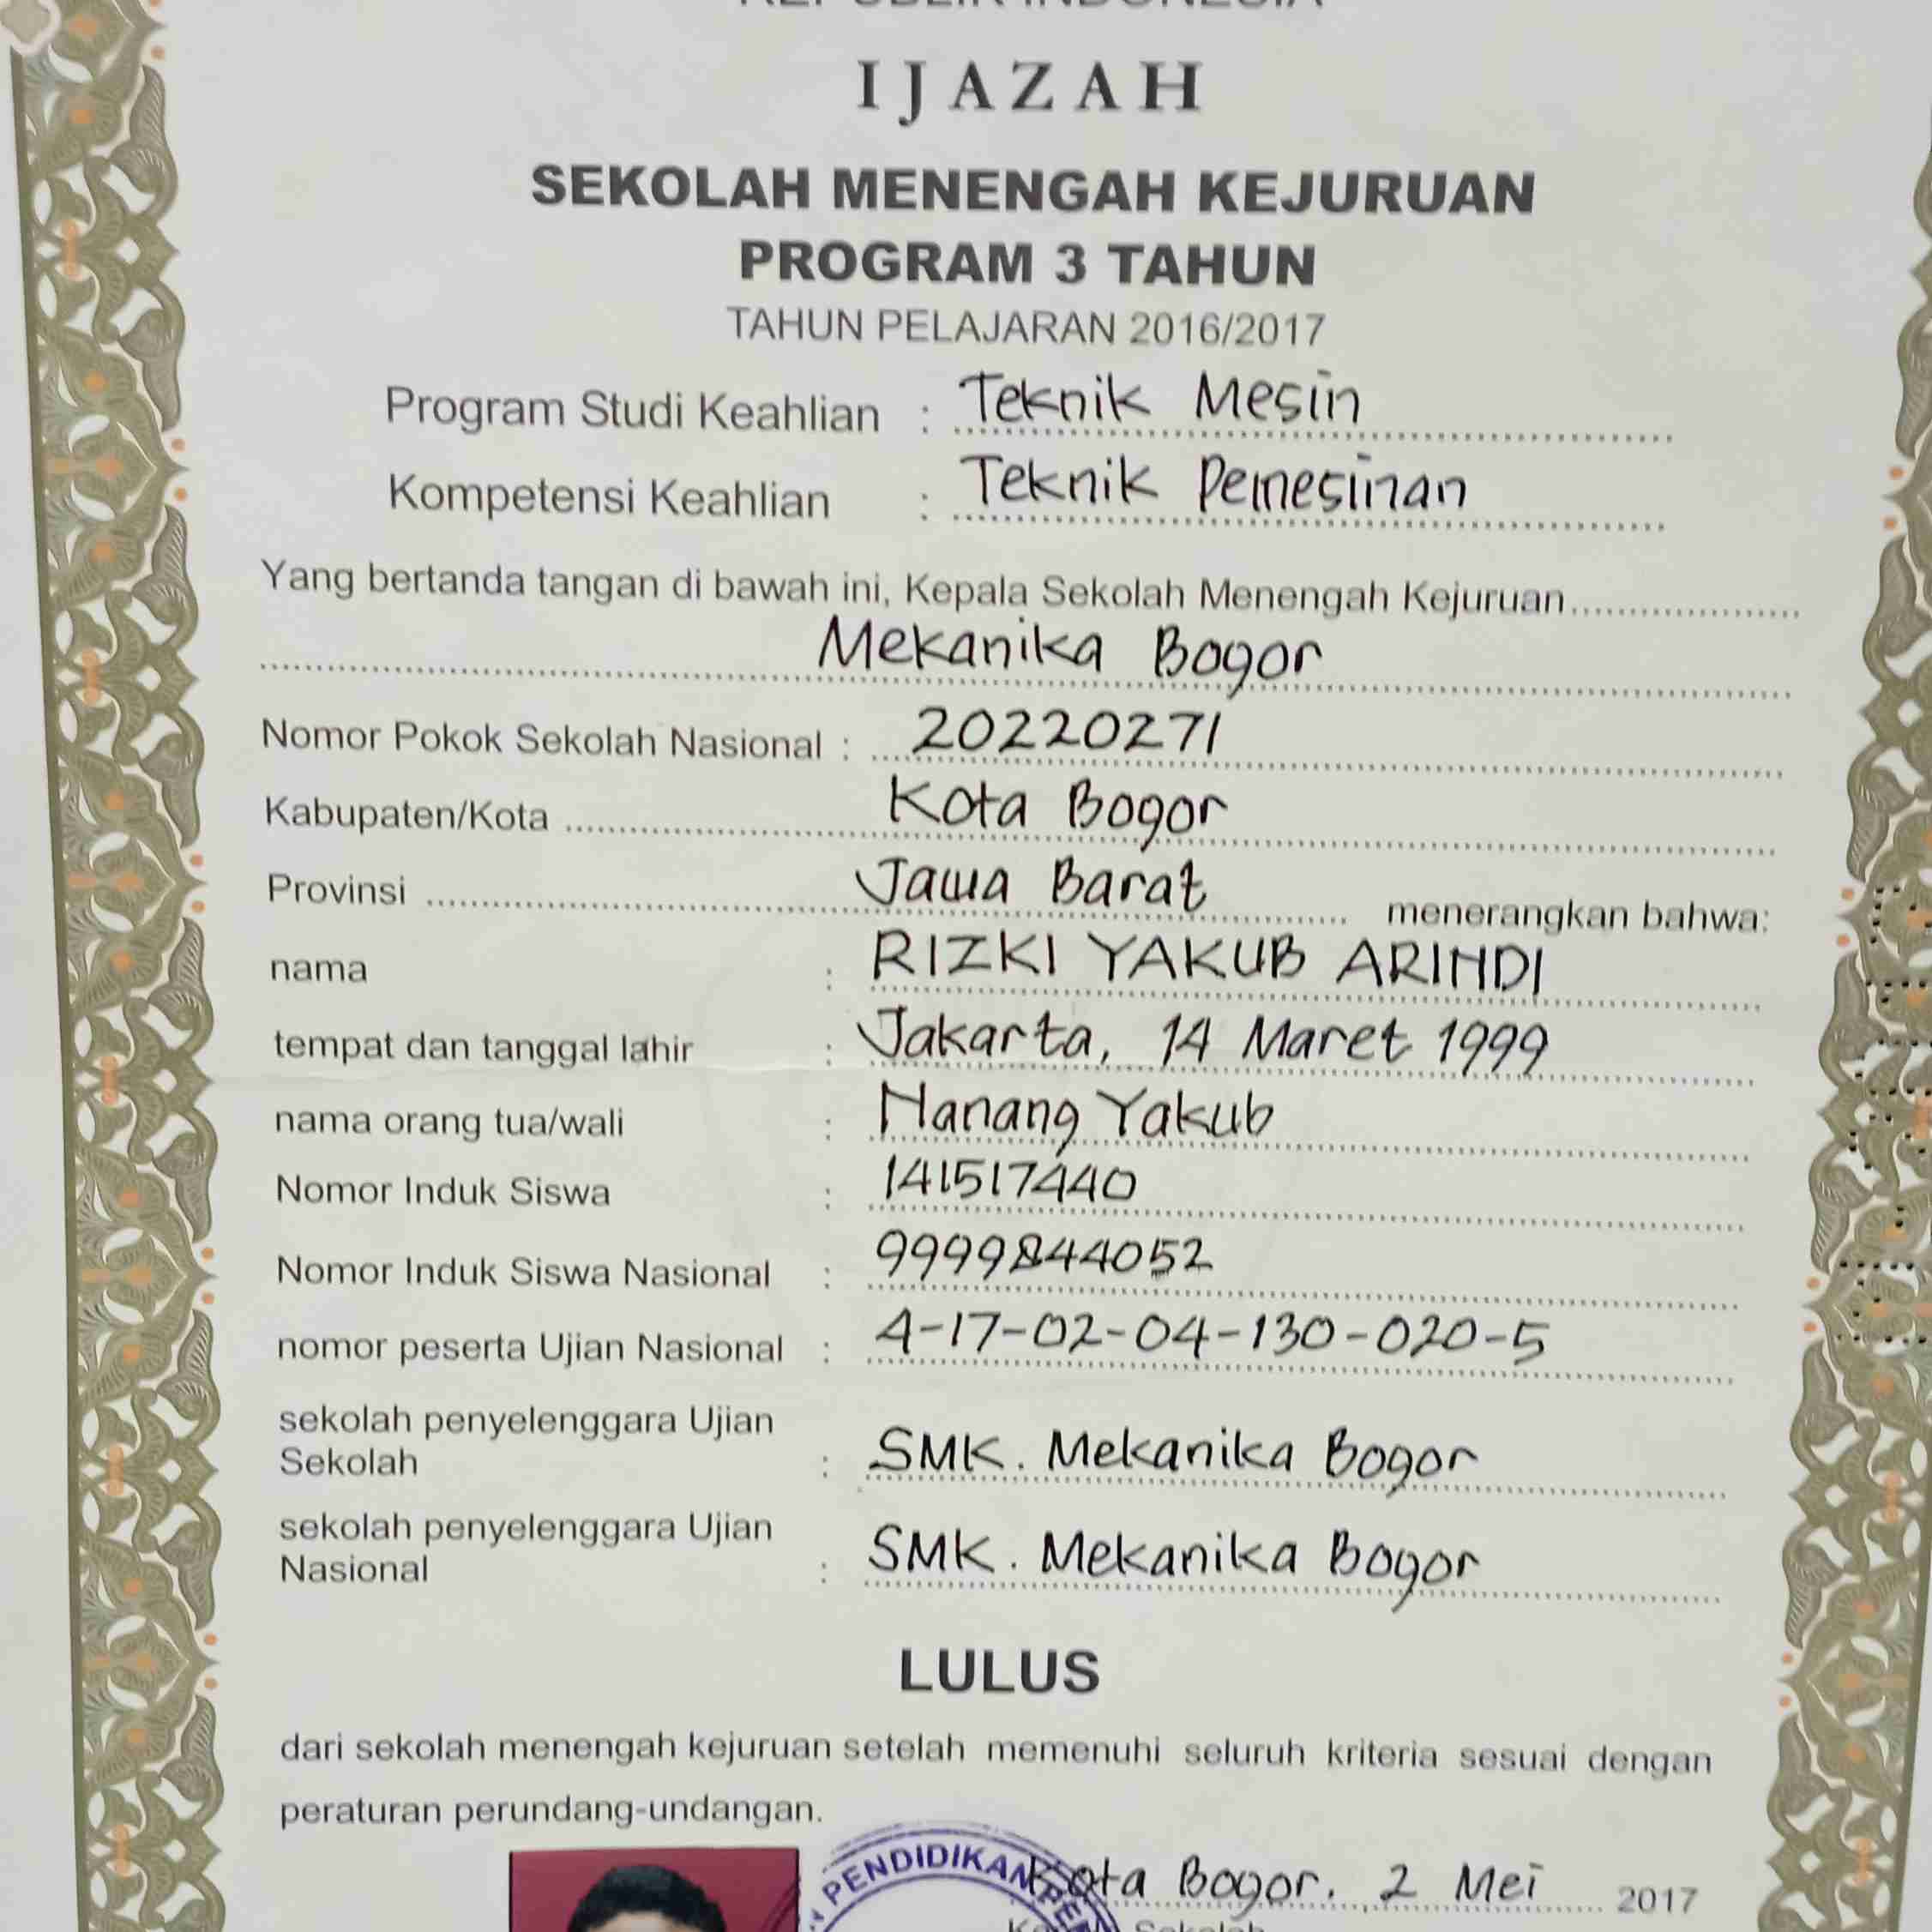 REPUBLIK INDONESIA
IJAZAH
SEKOLAH MENENGAH KEJURUAN
PROGRAM 3 TAHUN
TAHUN PELAJARAN 2016/2017
Program Studi Keahlian : Teknik Mesin
Kompetensi Keahlian : Teknik Pemesinan
Yang bertanda tangan di bawah ini, Kepala Sekolah Menengah Kejuruan
Mekanika Bogor
Nomor Pokok Sekolah Nasional : 20220271
Kabupaten/Kota Kota Bogor
Provinsi Jawa Barat menerangkan bahwa:
nama : RIZKI YAKUB ARINDI
tempat dan tanggal lahir : Jakarta, 14 Maret 1999
nama orang tua/wali : Nanang Yakub
Nomor Induk Siswa : 141517440
Nomor Induk Siswa Nasional : 9999844052
nomor peserta Ujian Nasional : 4-17-02-04-130-020-5
sekolah penyelenggara Ujian
Sekolah : SMK. Mekanika Bogor
sekolah penyelenggara Ujian
Nasional : SMK. Mekanika Bogor
LULUS
dari sekolah menengah kejuruan setelah memenuhi seluruh kriteria sesuai dengan
peraturan perundang-undangan.
PENDIDIKAN
Kota Bogor, 2 Mei 2017